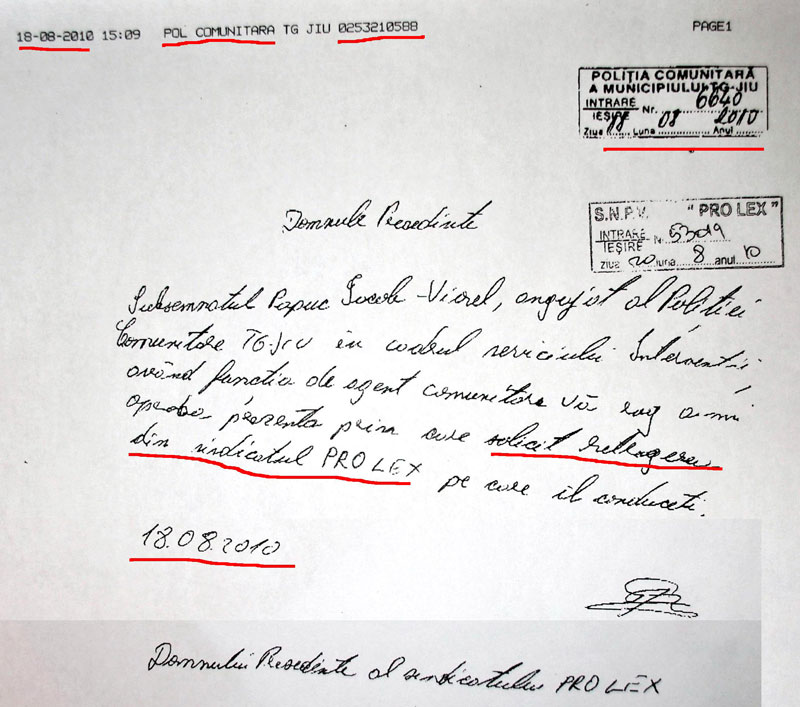 18-08-2010 15:09 POL COMUNITARA TG JIU 0253210588 PAGE1
POLIŢIA COMUNITARĂ
A MUNICIPIULUI TG-JIU
INTRARE
IEŞIRE Nr. 6640
Ziua 18 Luna 08 Anul 2010
S.N.P.V. "PRO LEX"
INTRARE
IEŞIRE Nr. 5309
Ziua 20 luna 8 anul 10
Domnule Presedinte
Subsemnatul Papuc Iacob-Viorel, angajat al Poliției
Comunitare TG-JIU în cadrul serviciului Intervenții
având funcția de agent comunitar vă rog a-mi
aproba prezenta prin care solicit retragerea
din sindicatul PRO LEX pe care îl conduceti.
18.08.2010
Domnului Presedinte al sindicatului PRO LEX